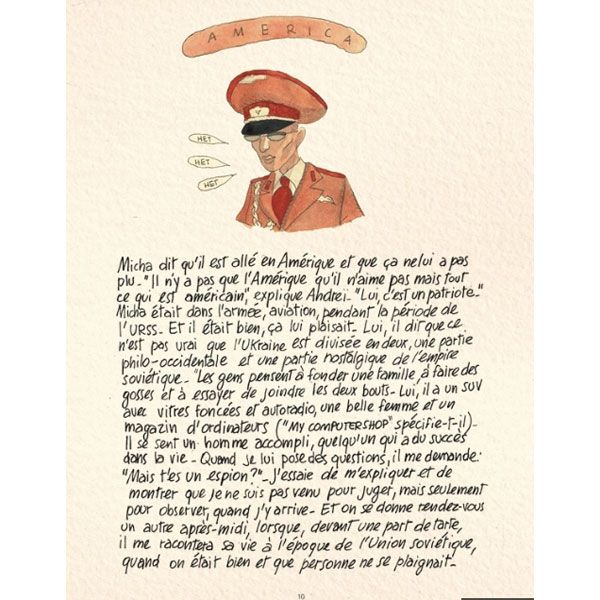 AMERICA
НЕТ
НЕТ
НЕТ
Micha dit qu'il est allé en Amérique et que ça ne lui a pas
plu_ "Il n'y a pas que l'Amérique qu'il n'aime pas mais tout
ce qui est américain", explique Andreï_ "Lui, c'est un patriote_"
Micha était dans l'armée, aviation, pendant la période de
l'URSS_ Et il était bien, ça lui plaisait_ Lui, il dit que ce
n'est pas vrai que l'Ukraine est divisée en deux, une partie
philo-occidentale et une partie nostalgique de l'empire
soviétique_ "Les gens pensent à fonder une famille, à faire des
gosses et à essayer de joindre les deux bouts_ Lui, il a un SUV
avec vitres foncées et autoradio, une belle femme et un
magazin d'ordinateurs ("MY COMPUTER SHOP" spécifie-t-il)_
Il se sent un homme accompli, quelqu'un qui a du succès
dans la vie_ Quand je lui pose des questions, il me demande:
"Mais t'es un espion?"_ J'essaie de m'expliquer et de
montrer que je ne suis pas venu pour juger, mais seulement
pour observer, quand j'y arrive_ Et on se donne rendez-vous
un autre après-midi, lorsque, devant une part de tarte,
il me racontera sa vie à l'époque de l'Union soviétique,
quand on était bien et que personne ne se plaignait_
10